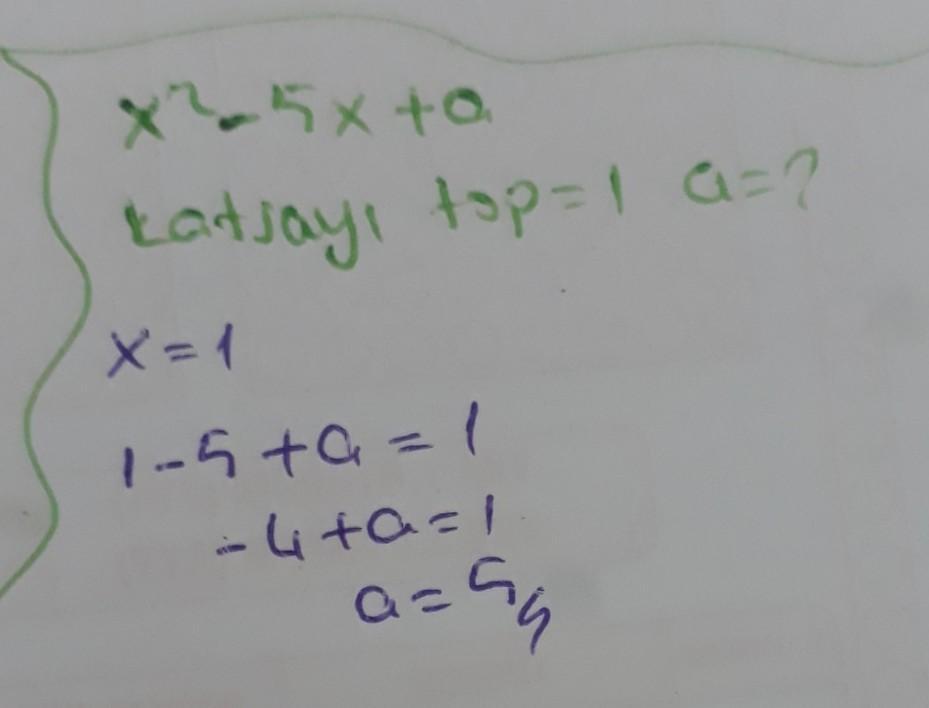 x² - 5x + a
katsayı top = 1 a = ?
x = 1
1 - 5 + a = 1
- 4 + a = 1
a = 5